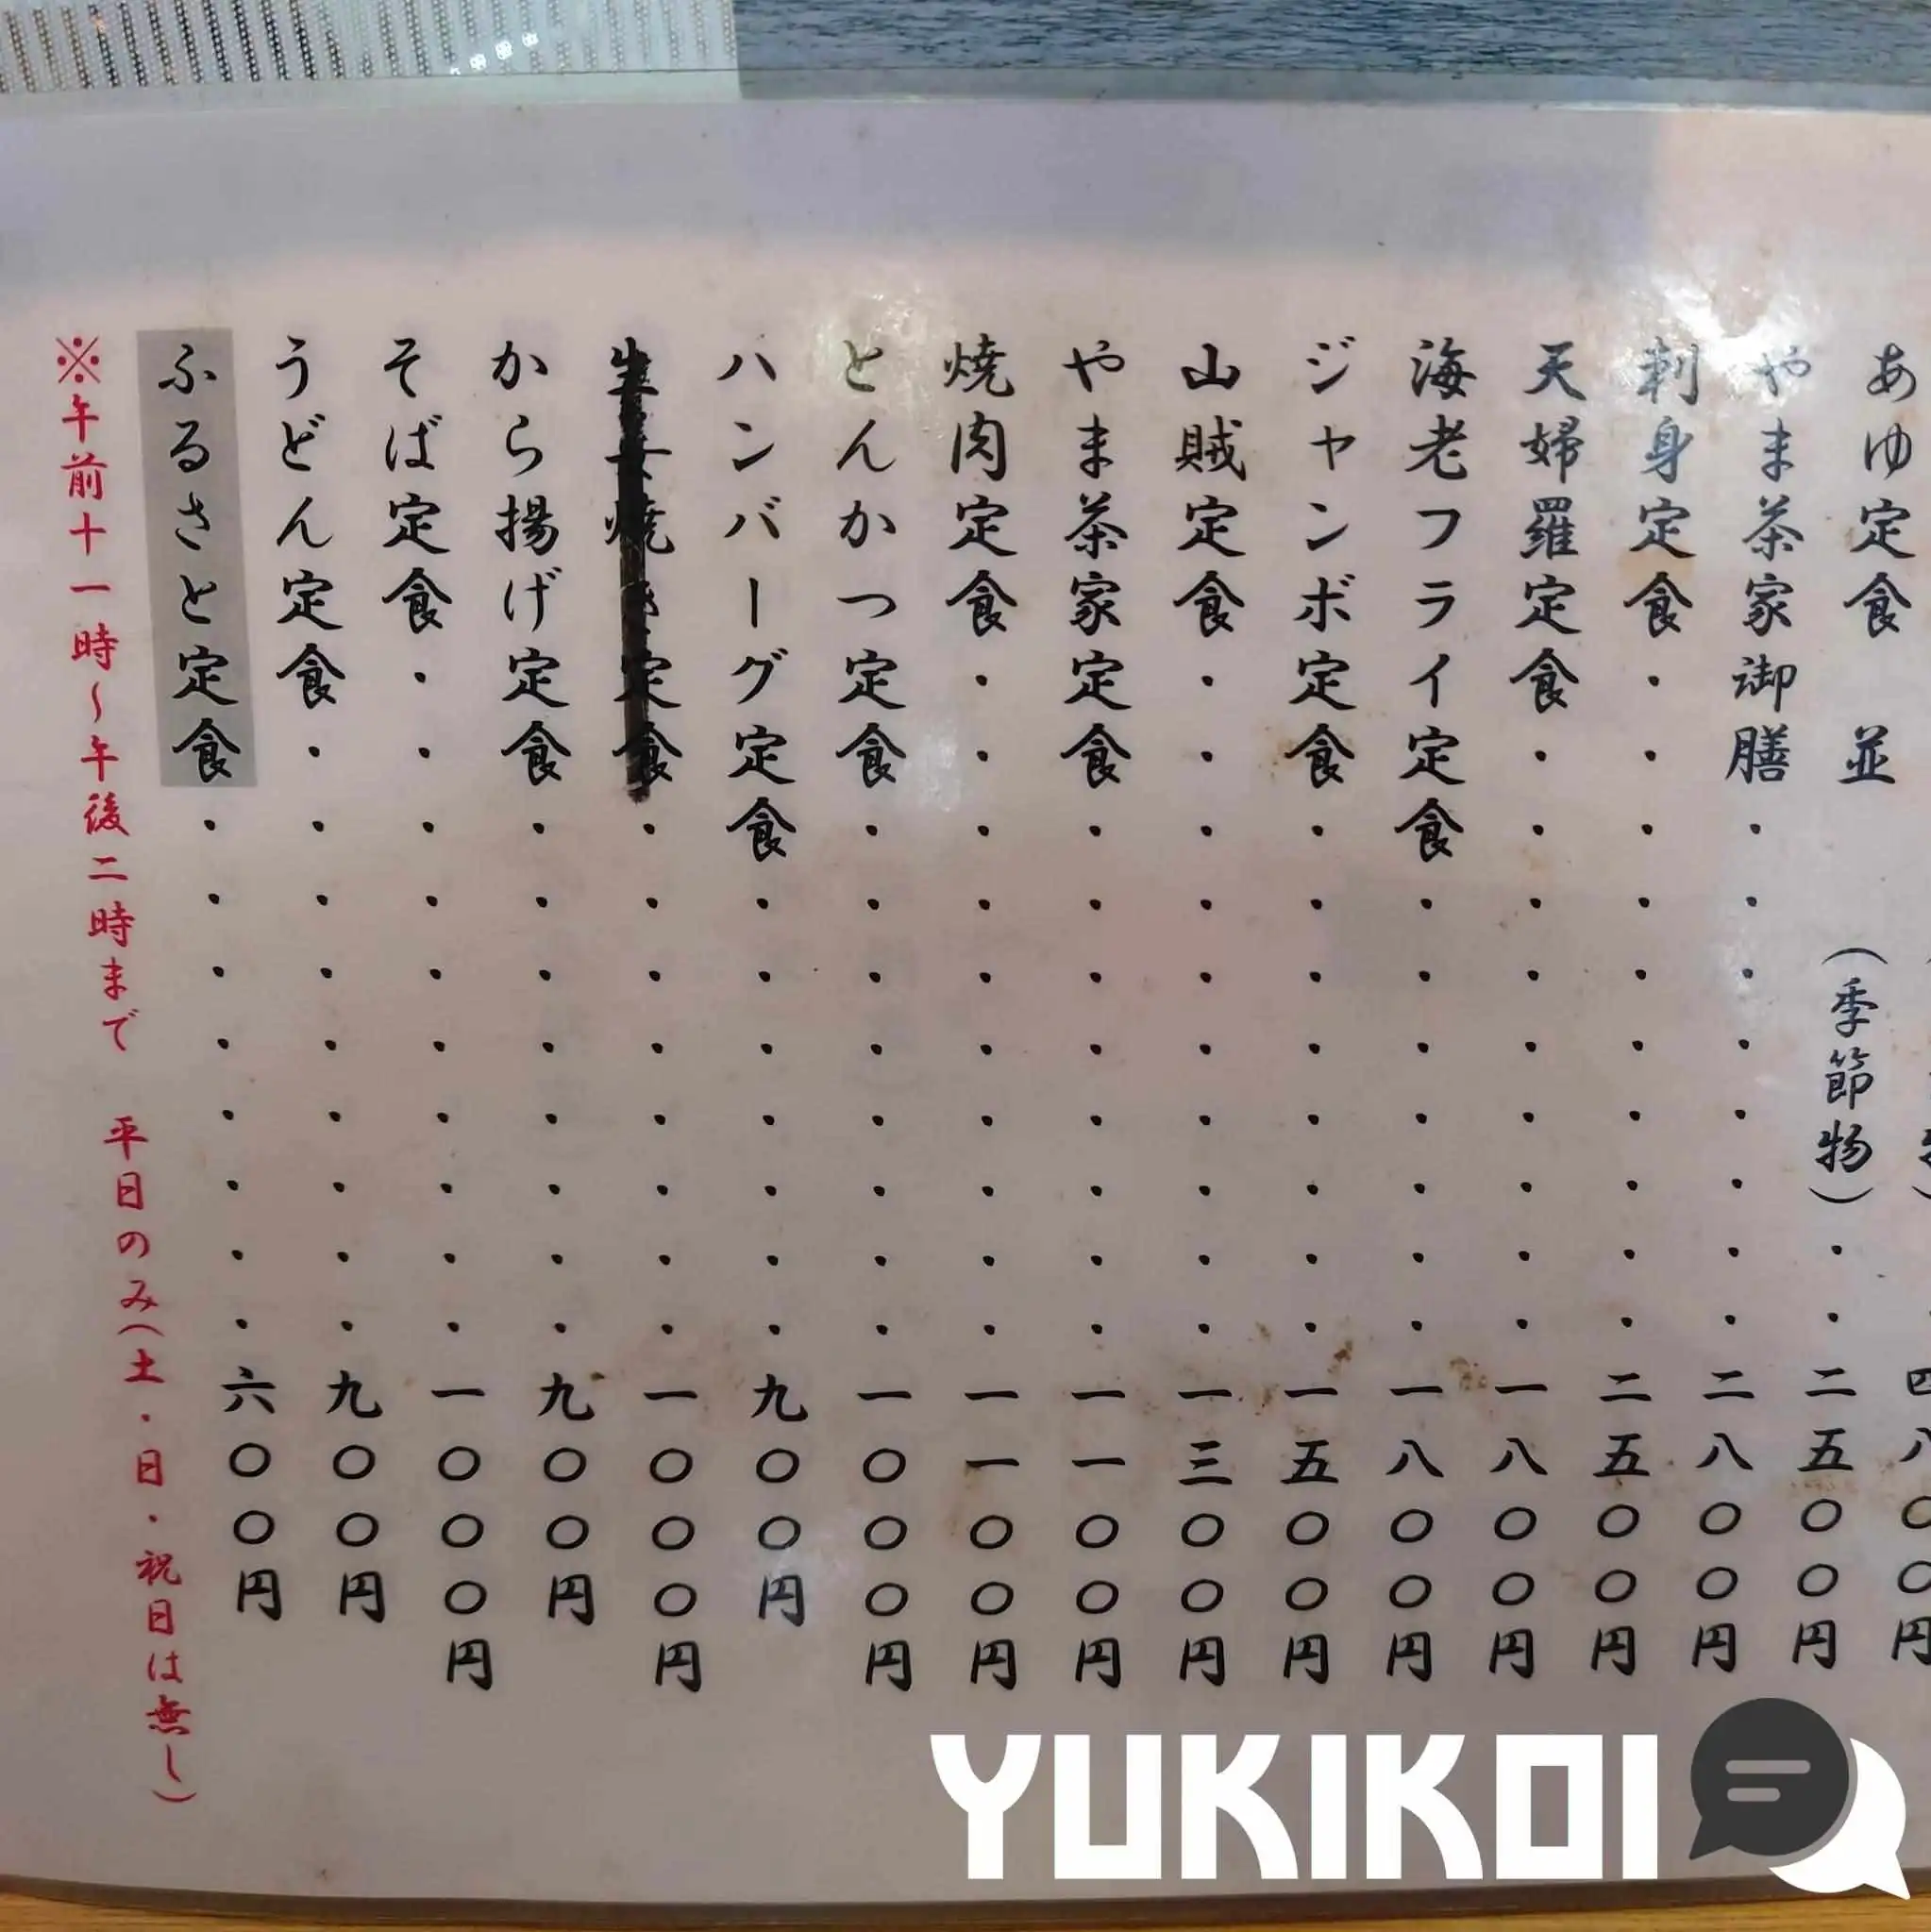 あゆ定食 並 (季節物)・・二五〇〇円
やま茶家御膳・・・・・・・・二八〇〇円
刺身定食・・・・・・・・・・二五〇〇円
天婦羅定食・・・・・・・・・一八〇〇円
海老フライ定食・・・・・・・一八〇〇円
ジャンボ定食・・・・・・・・一五〇〇円
山賊定食・・・・・・・・・・一三〇〇円
やま茶家定食・・・・・・・・一一〇〇円
焼肉定食・・・・・・・・・・一一〇〇円
とんかつ定食・・・・・・・・一〇〇〇円
ハンバーグ定食・・・・・・・九〇〇円
生姜焼き定食・・・・・・・・一〇〇〇円
から揚げ定食・・・・・・・・九〇〇円
そば定食・・・・・・・・・・一〇〇〇円
うどん定食・・・・・・・・・九〇〇円
ふるさと定食・・・・・・・・六〇〇円
※午前十一時～午後二時まで 平日のみ(土・日・祝日は無し)
YUKIKOI